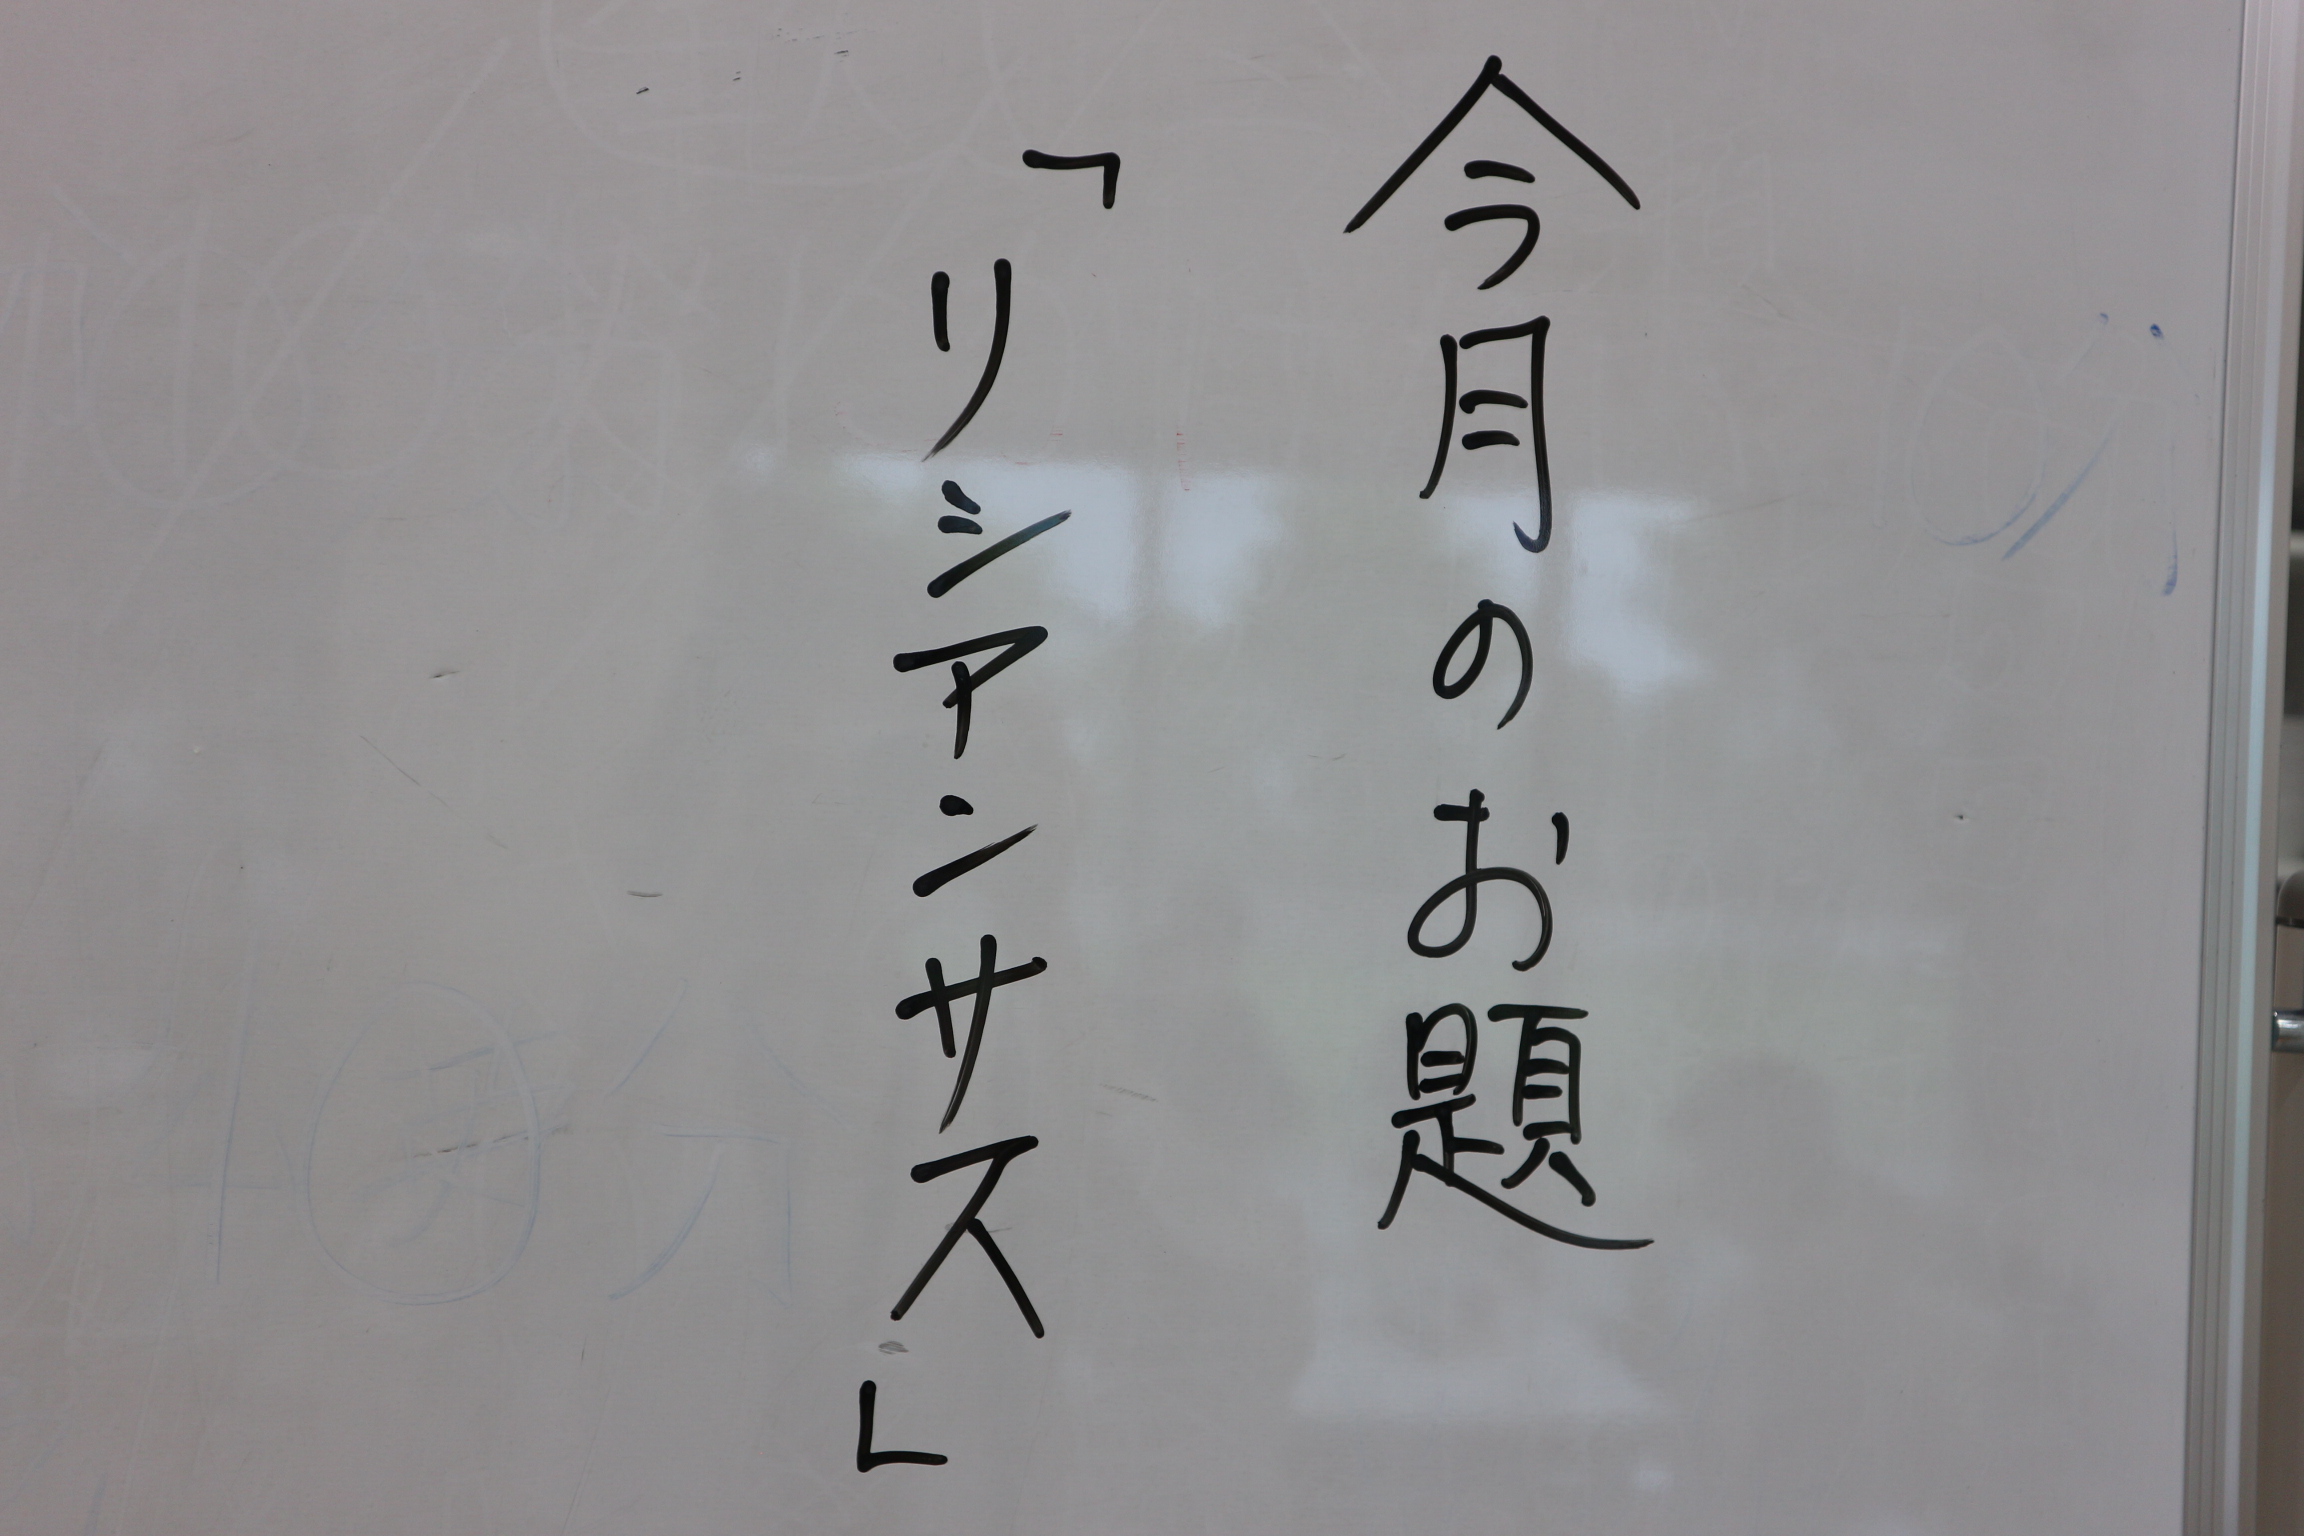 今月のお題
「リシアンサス」